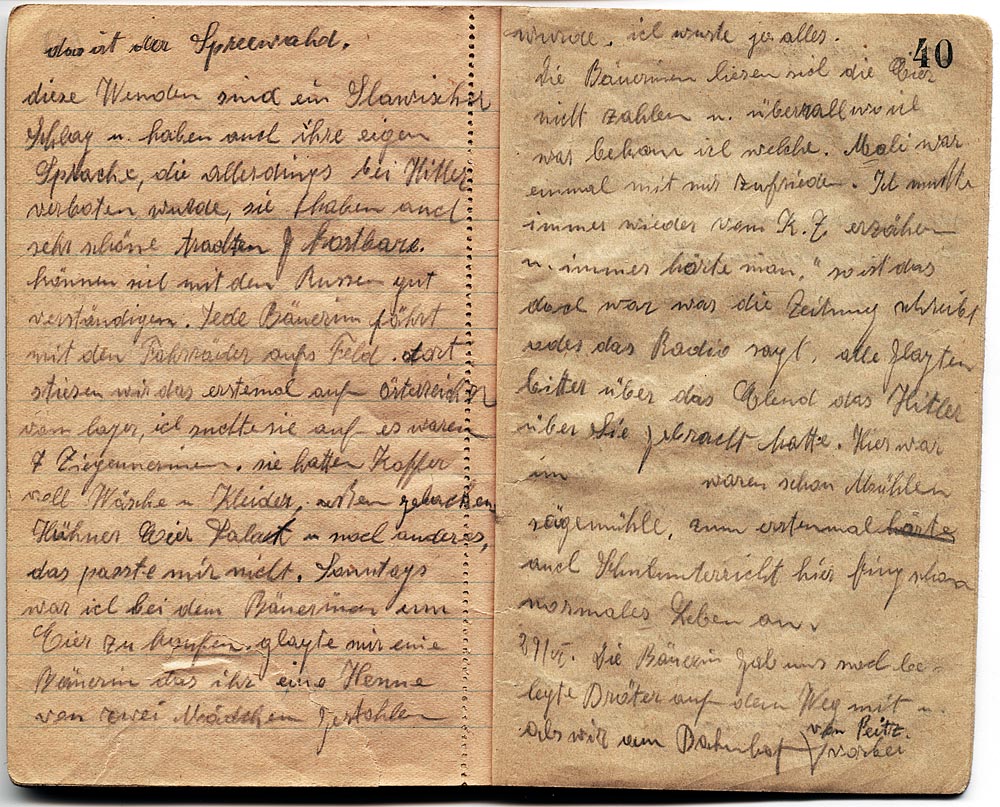 das ist der Spreewald.
diese Wenden sind ein Slawischer
Schlag u. haben auch ihre eigen
Sprache, die allerdings bei Hitler
verboten wurde, sie haben auch
sehr schöne trachten Kostbare.
können sich mit den Russen gut
verständigen. Jede Bäuerin fährt
mit den Fahrräder aufs Feld. dort
stiesen wir das erstemal auf österreicher
vom lager, ich suchte sie auf es waren
7 Ziegeunerinen. sie hatten Koffer
voll Wäsche u Kleider, gebacken
Hühner Eier Salaet u noch anderes,
das passte mir nicht. Sonntags
war ich bei dem Bäuerinen um
Eier zu kaufen. glagte mir eine
Bäuerin das ihr eine Henne
von zwei Mädchen gestohlen
40
wurde. ich wuste ja alles.
Die Bäuerinen liesen sich die Eier
nicht zahlen u. überall wo ich
war bekam ich welche. Mali war
einmal mit mir zufrieden. Ich musste
immer wieder vom K.Z. erzählen
u. immer hörte man, "so ist das
doch war was die Zeitung schreibt
odes das Radio sagt. alle glagten
bitter über das Elend das Hitler
über Sie gebracht hatte. Hier war
im waren schon Mühlen
sägemühle, zum erstenmal hörte
auch Schulunterricht hier fing schon
normales Leben an.
29/VI. Die Bäuerin gab uns noch be-
legte Bröter auf dem Weg mit u.
als wir am Bahnhof von Peitz.
vorbei